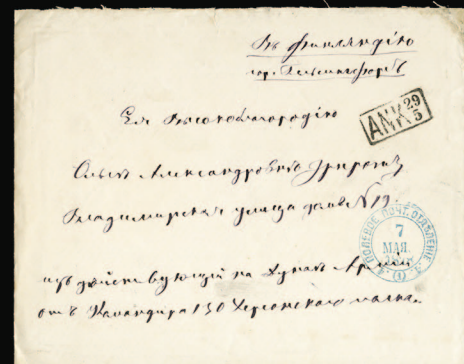 Въ Финляндію
гор. Гельсингфорсъ
Ея Высокоблагородію
ANK 29/5
Ольгѣ Александровнѣ
Владимирская улица домъ N 19.
ПОЛЕВОЕ ПОЧТ. ОТДѢЛЕНІЕ
7
МАЯ
изъ дѣйствующей на Дунаѣ Арміи
отъ Командира 130 Херсонскаго полка.